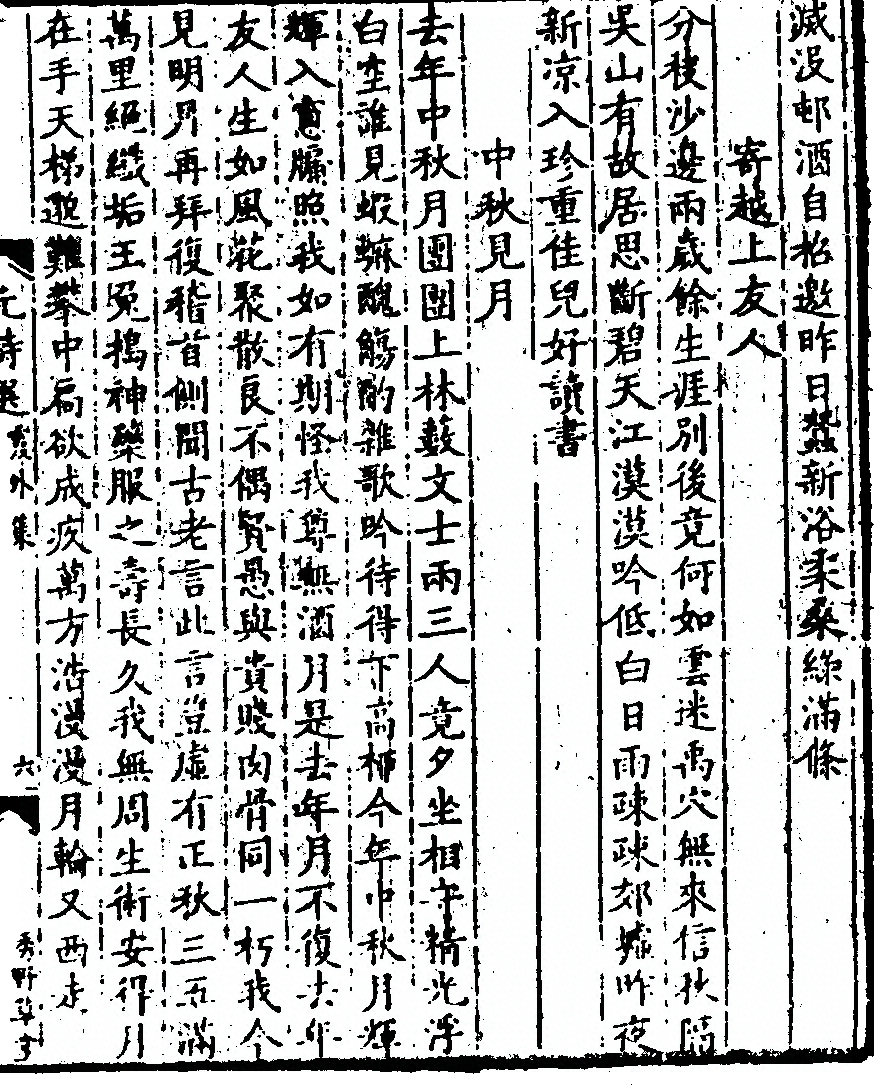 滅没邨酒自招邀昨日蠶新浴柔桑綠滿條
寄越上友人
分稜沙邊兩歲餘生涯別後竟何如雲迷禹穴無來信秋隔
吳山有故居思斷碧天江漠漠吟低白日雨疎疎郊墟昨夜
新凉入珍重佳兒好讀書
中秋見月
去年中秋月團團上林藪文士兩三人竟夕坐相守精光浮
白堂誰見蝦蟇醜觴酌雜歌吟待得下高栁今年中秋月輝
輝入窻牖照我如有期怪我尊無酒月是去年月不復去年
友人生如風花聚散良不偶賢愚與貴賤肉骨同一朽我今
見明月再拜復稽首側聞古老言此言豈虛有正秋三五滿
萬里絕纖垢玉兎搗神藥服之壽長久我無周生術安得月
在手天梯邈難攀中扄欲成疚萬方浩漫漫月輪又西走
元詩選 霞外集 六 秀野草堂